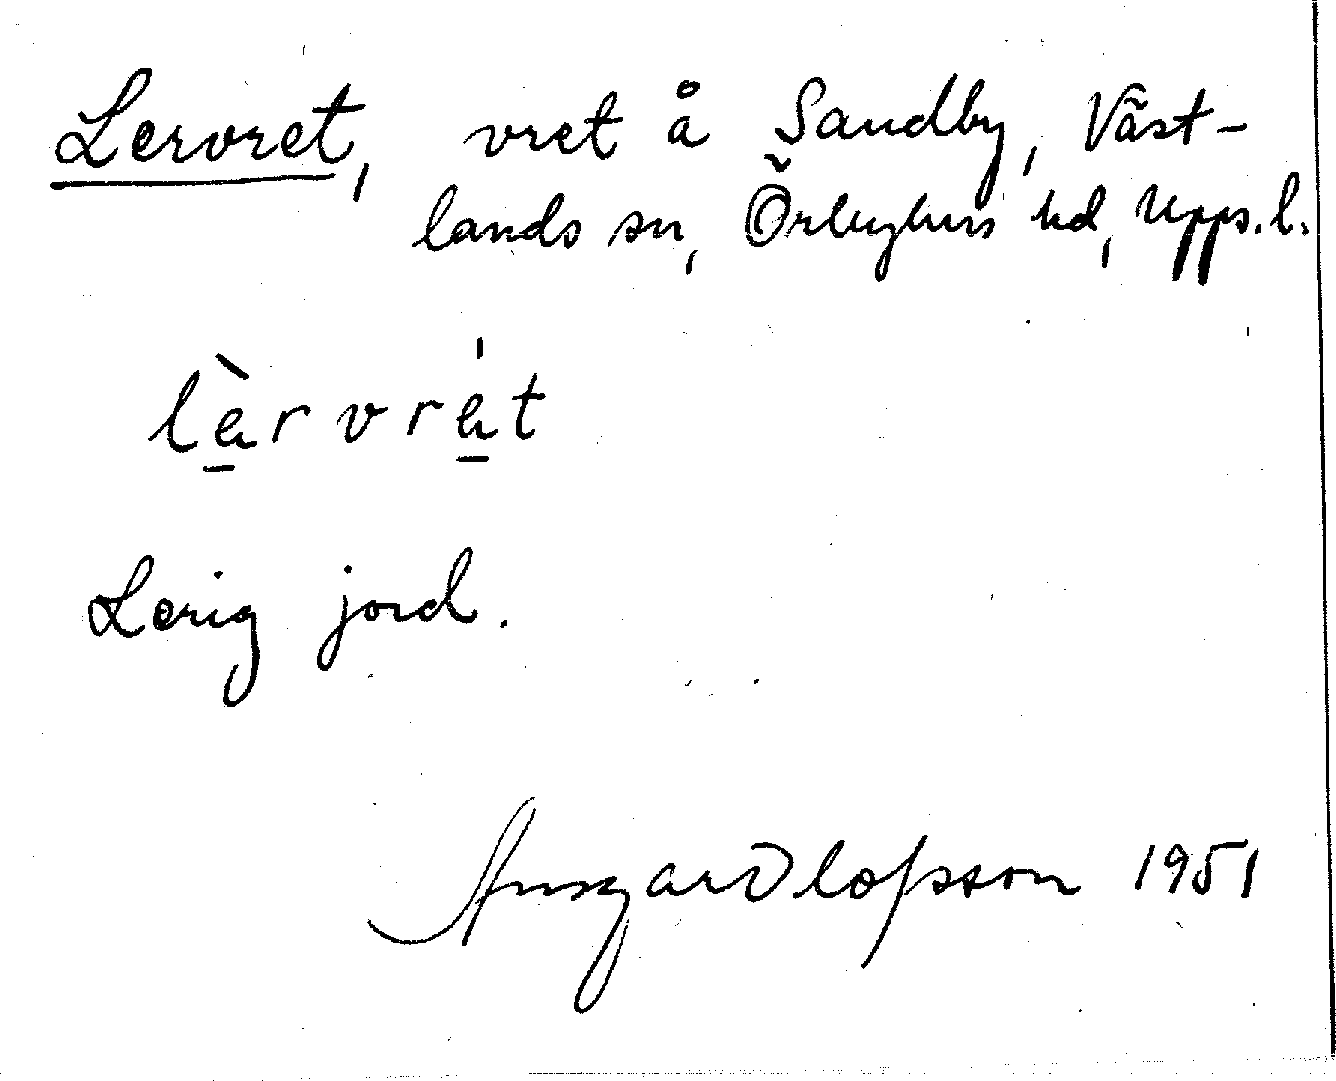 Lervret, vret å Sandby, Väst-
lands sn, Örbyhus hd, Upps. l.
lèrvrét
Lerig jord.
Ansgar Olofsson 1951